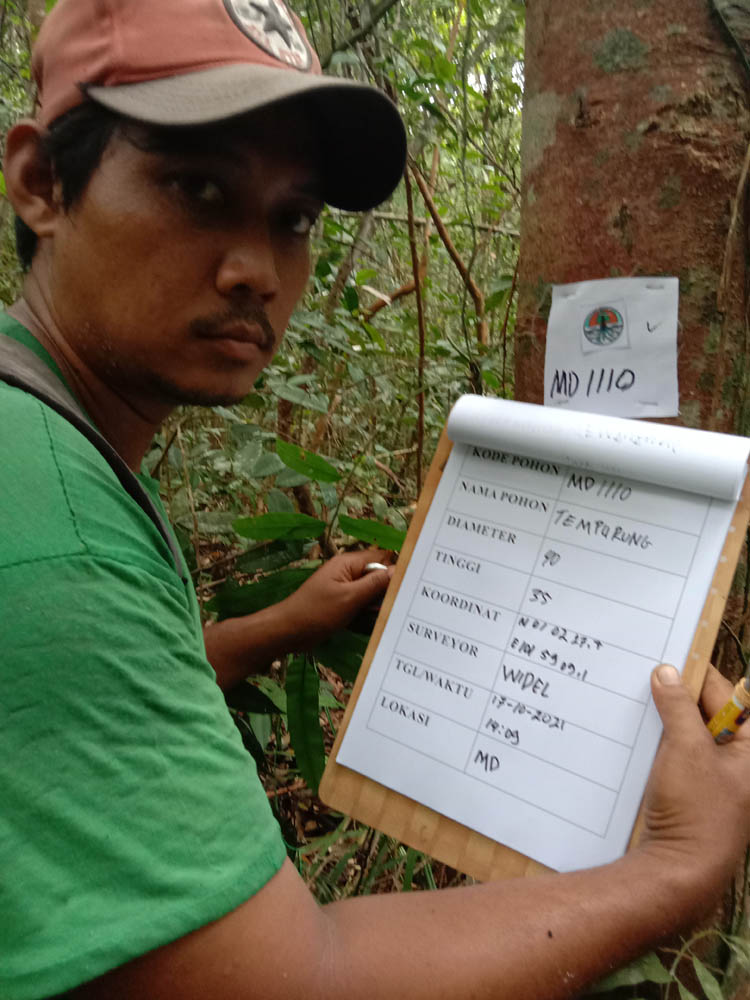 MD 1110
KODE POHON MD 1110
NAMA POHON TEMPURUNG
DIAMETER 90
TINGGI 35
KOORDINAT N 01 02 27.4
E101 59 09.1
SURVEYOR WIDEL
TGL/WAKTU 17-10-2021
14:09
LOKASI MD